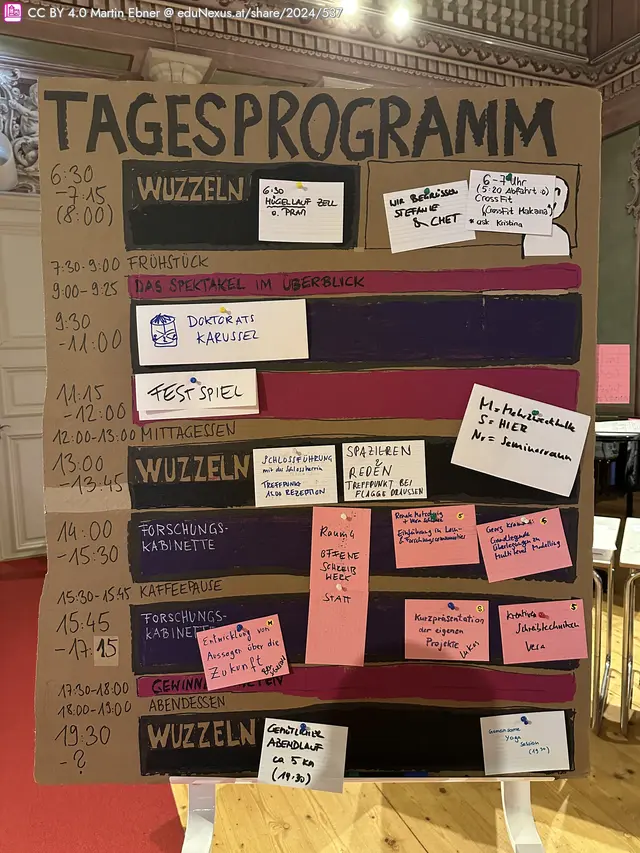 CC BY 4.0 Martin Ebner @ eduNexus.at/share/2024/537
TAGESPROGRAMM
6:30
-7:15
(8:00)
WUZZELN
6:30
HÜGELLAUF ZELL
o. PRAM
WIR BEGRÜSSEN
STEFANIE
& CHET
6-7 Uhr
(5:20 Abfahrt :o)
CrossFit
(CrossFit Makana)
* ask Kristina
7:30-9:00 FRÜHSTÜCK
9:00-9:25 DAS SPEKTAKEL IM ÜBERBLICK
9:30
-11:00
DOKTORATS
KARUSSEL
11:15
-12:00
FESTSPIEL
M = Mehrzweckhalle
S = HIER
Nr = Seminarraum
12:00-13:00 MITTAGESSEN
13:00
-13:45
WUZZELN
SCHLOSSFÜHRUNG
mit der Schlossherrin
TREFFPUNKT
13.00 REZEPTION
SPAZIEREN
&
REDEN
TREFFPUNKT BEI
FLAGGE DRAUSSEN
14:00
-15:30
FORSCHUNGS-
KABINETTE
Raum 4
OFFENE
SCHREIB
WERK
STATT
5
Einführung in
6
Georg
Grundlegende
Überlegungen zu
Multilevel Modelling
15:30-15:45 KAFFEEPAUSE
15:45
-17:15
FORSCHUNGS-
KABINETTE
M
Entwicklung von
Aussagen über die
Zukunft
Kurzpräsentation
der eigenen
Projekte
Lukas
5
Kreative
Schreibtechniken
Vera
17:30-18:00
18:00-19:00 ABENDESSEN
19:30
- ?
WUZZELN
GEMÜTLICHER
ABENDLAUF
ca 5 km
(19:30)
Gemeinsame
Yoga
(19:30)